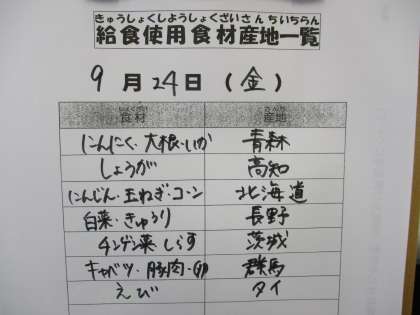 きゅうしょくしようしょくざいさんちいちらん
給食使用食材産地一覧
9月24日(金)
しょくざい さんち
食材 産地
にんにく・大根・いか 青森
しょうが 高知
にんじん・玉ねぎ・コーン 北海道
白菜・きゅうり 長野
チンゲン菜 しらす 茨城
キャベツ・豚肉・卵 群馬
えび タイ